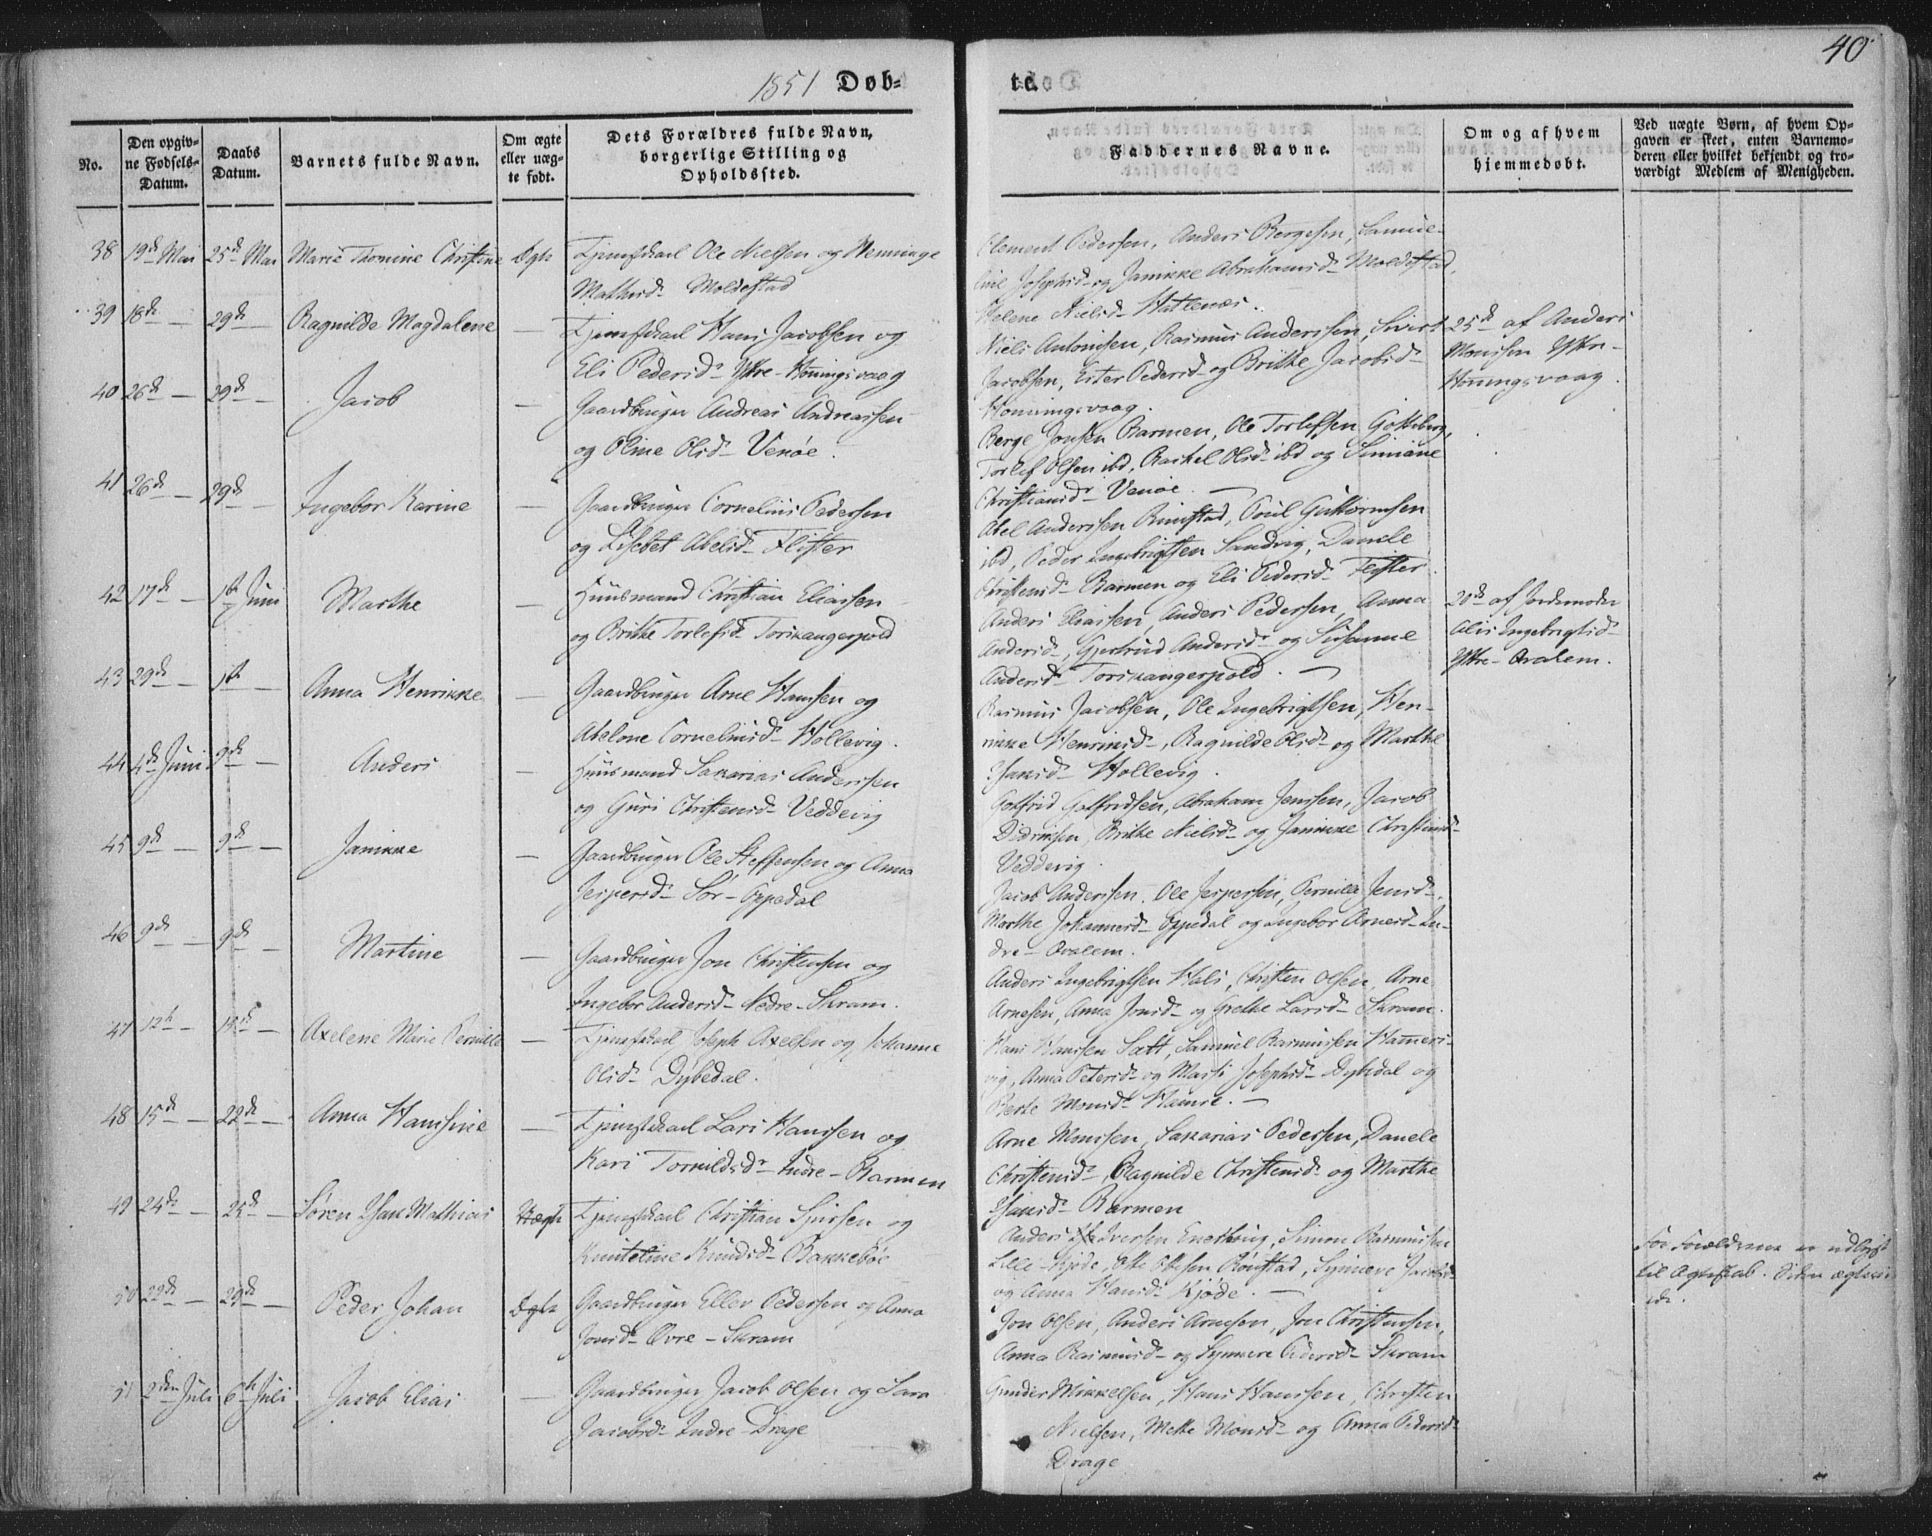 40
1851 Døb-
te.
No.
Den opgiv-
ne Fødsels-
Datum.
Daabs
Datum.
Barnets fulde Navn.
Om ægte
eller uæg-
te født.
Dets Forældres fulde Navn,
borgerlige Stilling og
Opholdssted.
Faddernes Navne.
Om og af hvem
hjemmedøbt.
Ved uægte Børn, af hvem Op-
gaven er skeet, enten Barnemo-
deren eller hvilket bekjendt og tro-
værdigt Medlem af Menigheden.
38 19de Mai 25de Mai Marie Thomine Christine Ægte Tjenestkarl Ole Nielsen og Henninge
Mathisd. Moldestad
Clement Pedersen, Anders Børgesen, Samue-
line Josephsd. og Janikke Abrahamsd. Moldestad,
Helene Nielsd. Hattenæs.
39 18de — 29de — Ragnilde Magdalene — Tjenestkarl Hans Jacobsen og
Eli Pedersd. Ytre-Honningsvaag
Niels Antonisen, Rasmus Anderssen, Sivert
Jacobsen, Ester Pedersd. og Brithe Jacobsd.
Honningsvaag.
25de af Anders
Monssen Ytre-
Honingsvaag.
40 26de — 29de — Jacob — Gaardbruger Andreas Andreassen
og Oline Olsd. Venøe.
Berge Jonsen Barmen, Ole Torlefsen
Torlef Olsen ibd, Rachel Olsd. ibd og Simiane
Christiansd. Venøe. —
41 26de — 29de — Ingebor Karine — Gaardbruger Cornelius Pedersen
og Lisebet Abelsd. Flister
Abel Anderssen Rimstad, Poul Guttormsen
ibd, Peder Ingebrigtsen Sandvig, Danele
Christensd. Barmen og Eli Pedersd. Flister.
42 17de — 1ste Juni Marthe — Huusmand Christian Eliassen
og Brithe Torlefsd. Torskangerpold
Anders Eliassen, Anders Pedersen, Anna
Andersd., Gjertrud Andersd. og Susanne
Andersd. Torskangerpold. —
20de af Jordemoder
Alis Ingebrigtsd.
Ytre-Aralem.
43 29de — 1ste — Anna Henrikke — Gaardbruger Arne Hanssen og
Abelone Corneliusd. Hollevig.
Rasmus Jacobsen, Ole Ingebrigtsen, Hen-
rikke Henriksd., Ragnilde Olsd. og Marthe
Hansd. Hollevig.
44 4de Juni 9de — Anders — Huusmand Sakarias Anderssen
og Guri Christensd. Veddevig
Gotfrid Gotfridsen, Abraham Jenssen, Jacob
Didriksen, Brithe Nielsd. og Janikke Christensd.
Veddevig.
45 9de — 9de — Janikke — Gaardbruger Ole Steffensen og Anna
Jespersd. Sør-Oppedal
Jacob Anderssen, Ole Jesperssen, Pernilla Jensd.
Marthe Johannesd. Oppedal og Ingebor Arnesd. In-
dre-Aralem.
46 9de — 9de — Martine — Gaardbruger Jon Christensen og
Ingebor Andersd. Nedre-Skram.
Anders Ingebrigtsen Hals, Christen Olsen, Arne
Arnesen, Anna Jonsd. og Grethe Larsd. Skram.
47 12te — 15de — Axelene Marie Pernille — Tjenestkarl Joseph Axelsen og Johanne
Olsd. Dybedal.
Hans Hanssen Satt, Samuel Rasmussen Hameris-
vig, Anna Petersd. og Marte Josephsd. Dybedal og
Berte Monsd. Hamre. —
48 15de — 22de — Anna Hansine — Tjenestkarl Lars Hanssen og
Kari Torkildsdr. Indre-Barmen
Arne Monssen, Sakarias Pedersen, Danele
Christensd., Ragnilde Christensd. og Marthe
Hansd. Barmen
49 24de — 25de — Søren Isak Mathias Uægte Tjenestkarl Christian Sjursen og
Knuteline Knudsd. Bakkebøe
Anders Iversen Eneboug, Simon Rasmussen
Lille-Kjøde, Otte Ottesen Rønstad, Synneve Jacobsd.
og Anna Hansd. Kjøde. —
For Forældrene er udlyst
til Ægteskab. Siden
50 22de — 29de — Peder Johan Ægte Gaardbruger Eller Pedersen og Anna
Jonsd. Øvre-Skram
Jon Olsen, Anders Arnesen, Jon Christensen,
Anna Rasmusd. og Synneve Pedersd. Skram
51 2den Juli 6te Juli Jacob Elias — Gaardbruger Jacob Olsen og Sara
Jacobsd. Indre-Drage
Gunder Mikkelsen, Hans Hanssen, Christen
Nielsen, Mette Monsd. og Anna Pedersd.
Drage